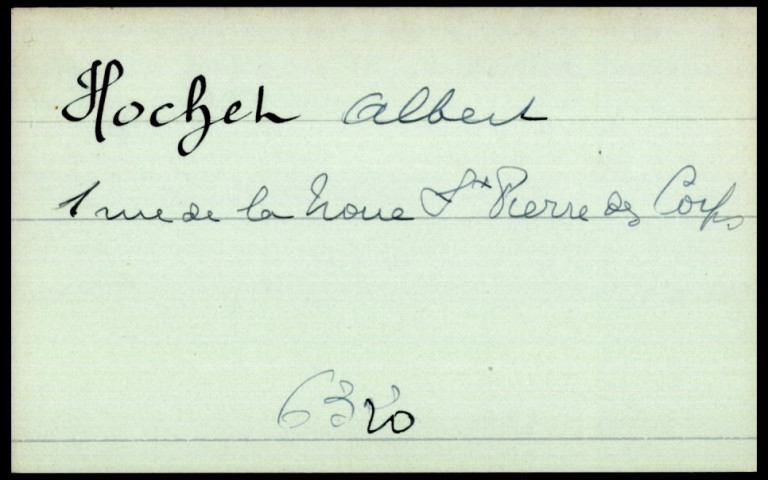 Hochet Albert
1 rue de la Noue St Pierre des Corps
6320